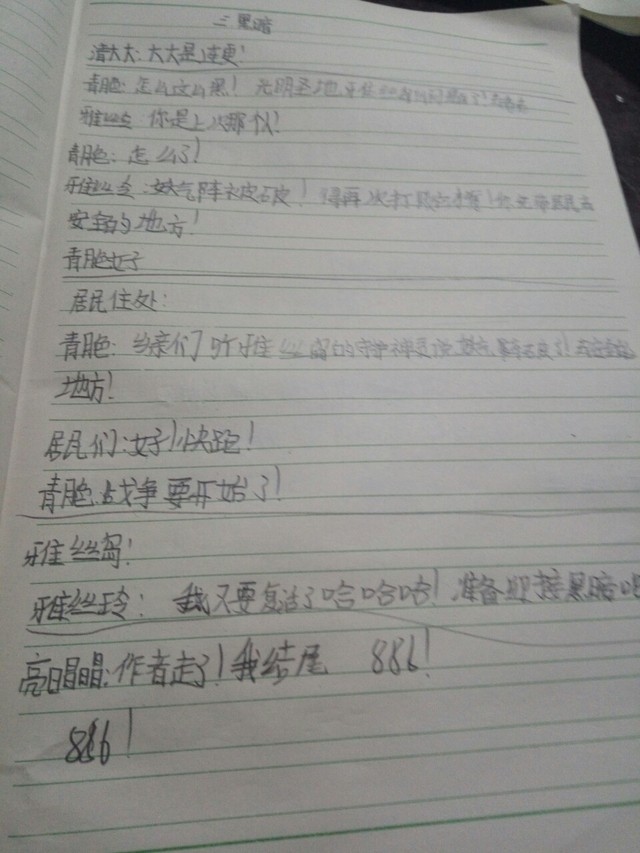 三 黑暗
清大大:大大是连更!
青胞:怎么这么黑!光明圣地
雅丝 你是上次那仪!
青胞:怎么了!
雅丝 :妖气阵被破!得再次打 !你先带居民去
安全的地方!
青胞:好
居民住处:
青胞:乡亲们 听雅丝 的守护神灵说 破了!去安全的
地方!
居民们:好!快跑!
青胞:战争要开始了!
雅丝岛:
雅丝玲:我又要复活了哈哈哈!准备迎接黑暗吧
亮晶晶:作者走了!我结尾 886!
886!